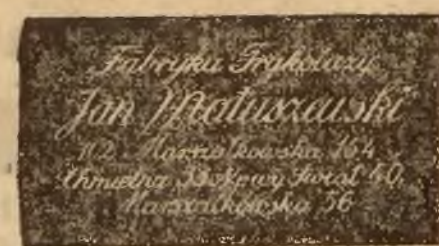 Fabryka Trykotaży
Jan Matuszewski
Marszałkowska 154
Chmielna 33 Nowy Świat 40,
Marszałkowska 56